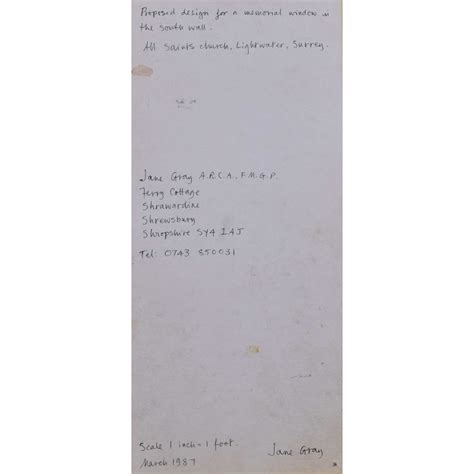 Proposed design for a memorial window in
the south wall.
All Saints church, Lightwater, Surrey.
Jane Gray A.R.C.A., F.M.G.P.
Ferry Cottage
Shrawardine
Shrewsbury
Shropshire SY4 1AJ
Tel: 0743 850031
Scale 1 inch = 1 foot.
March 1987
Jane Gray